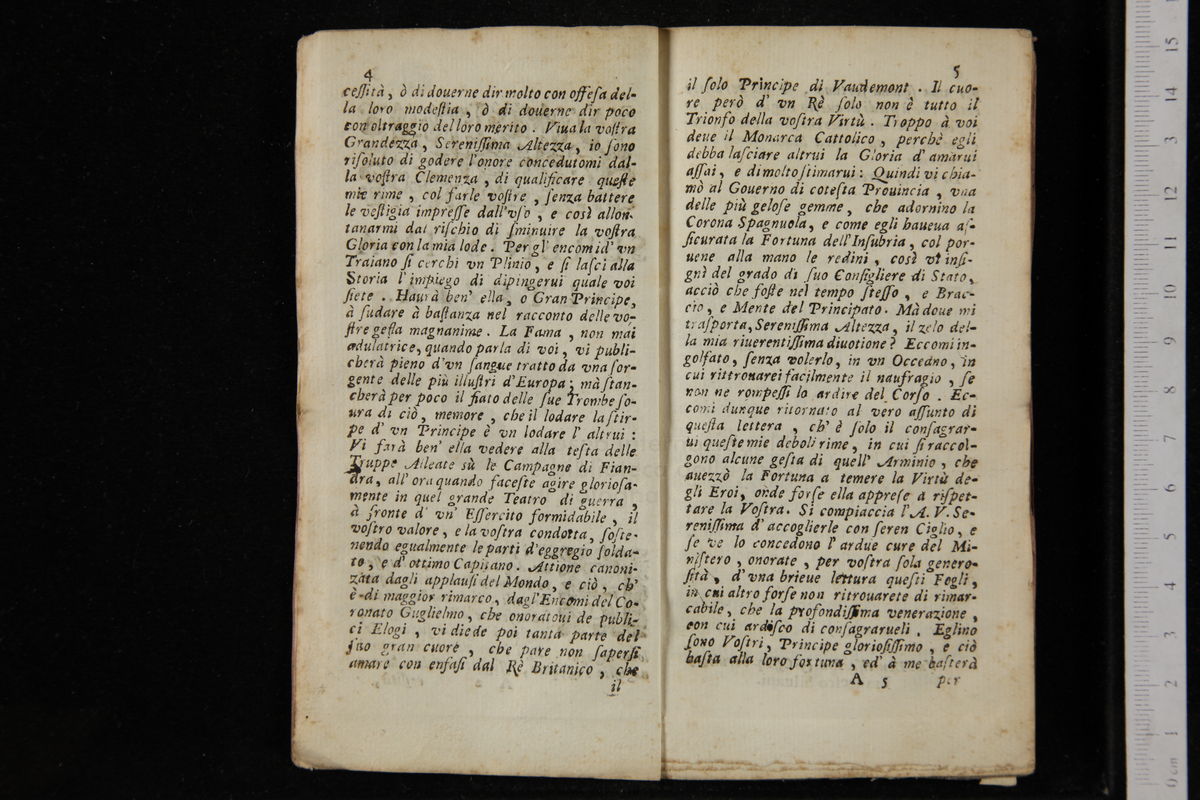 4
ceſſità, ò di douerne dir molto con offeſa del-
la loro modeſtia, ò di douerne dir poco
con oltraggio del loro merito. Viua la voſtra
Grandezza, Sereniſſima Altezza, io ſono
riſoluto di godere l'onore concedutomi dal-
la voſtra Clemenza, di qualificare queſte
mie rime, col farle voſtre, ſenza battere
le veſtigia impreſſe dall'vſo, e così allon-
tanarmi dal riſchio di ſminuire la voſtra
Gloria con la mia lode. Per gl' encomi d' vn
Traiano ſi cerchi vn Plinio, e ſi laſci alla
Storia l'impiego di dipingerui quale voi
ſiete. Haurà ben' ella, o Gran Principe,
à ſudare à baſtanza nel racconto delle vo-
ſtre geſta magnanime. La Fama, non mai
adulatrice, quando parla di voi, vi publi-
cherà pieno d'vn ſangue tratto da vna ſor-
gente delle più illuſtri d'Europa; mà ſtan-
cherà per poco il fiato delle ſue Trombe ſo-
ura di ciò, memore, che il lodare la ſtir-
pe d' vn Principe è vn lodare l' altrui:
Vi farà ben' ella vedere alla teſta delle
Truppe Alleate sù le Campagne di Fian-
dra, all' ora quando faceſte agire glorioſa-
mente in quel grande Teatro di guerra,
à fronte d' vn' Eſſercito formidabile, il
voſtro valore, e la voſtra condotta, ſoſte-
nendo egualmente le parti d'eggregio ſolda-
to, e d' ottimo Capitano. Attione canoni-
zata dagli applauſi del Mondo, e ciò, ch'
è di maggior rimarco, dagl'Encomi del Co-
ronato Guglielmo, che onoratoui de publi-
ci Elogi, vi diede poi tanta parte del
ſuo gran cuore, che pare non ſaperſi
amare con enfaſi dal Rè Britanico, che
il
5
il ſolo Principe di Vaudemont. Il cuo-
re però d' vn Rè ſolo non è tutto il
Trionfo della voſtra Virtù. Troppo à voi
deue il Monarca Cattolico, perchè egli
debba laſciare altrui la Gloria d' amarui
aſſai, e di molto ſtimarui: Quindi vi chia-
mò al Gouerno di coteſta Prouincia, vna
delle più geloſe gemme, che adornino la
Corona Spagnuola, e come egli haueua aſ-
ſicurata la Fortuna dell'Inſubria, col por-
uene alla mano le redini, così vi inſi-
gnì del grado di ſuo Conſigliere di Stato,
acciò che foſte nel tempo ſteſſo, e Brac-
cio, e Mente del Principato. Mà doue mi
traſporta, Sereniſſima Altezza, il zelo del-
la mia riuerentiſſima diuotione? Eccomi in-
golfato, ſenza volerlo, in vn Occeano, in
cui rittrouarei facilmente il naufragio, ſe
non ne rompeſſi lo ardire del Corſo. Ec-
comi dunque ritornato al vero aſſunto di
queſta lettera, ch' è ſolo il conſagrar-
ui queſte mie deboli rime, in cui ſi raccol-
gono alcune geſta di quell' Arminio, che
auezzò la Fortuna a temere la Virtù de-
gli Eroi, onde forſe ella appreſe a riſpet-
tare la Voſtra. Si compiaccia l'A. V. Se-
reniſſima d' accoglierle con ſeren Ciglio, e
ſe ve lo concedono l' ardue cure del Mi-
niſtero, onorate, per voſtra ſola genero-
ſità, d'vna brieue lettura queſti Fogli,
in cui altro forſe non ritrouarete di rimar-
cabile, che la profondiſſima venerazione,
con cui ardiſco di conſagrarueli. Eglino
ſono Voſtri, Principe glorioſiſſimo, e ciò
baſta alla loro fortuna, ed' à me baſterà
A 5 per